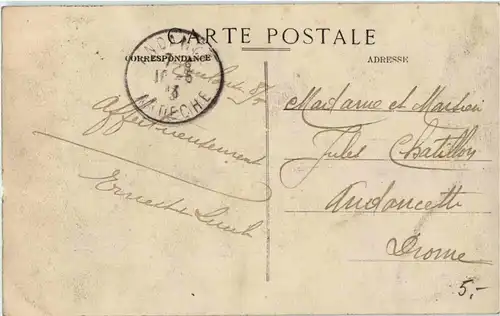 CARTE POSTALE
CORRESPONDANCE
ADRESSE
ARDECHE
affectueusement
Ernest
Madame et Monsieur
Jules Chatillon
Andancette
Drome
5,-